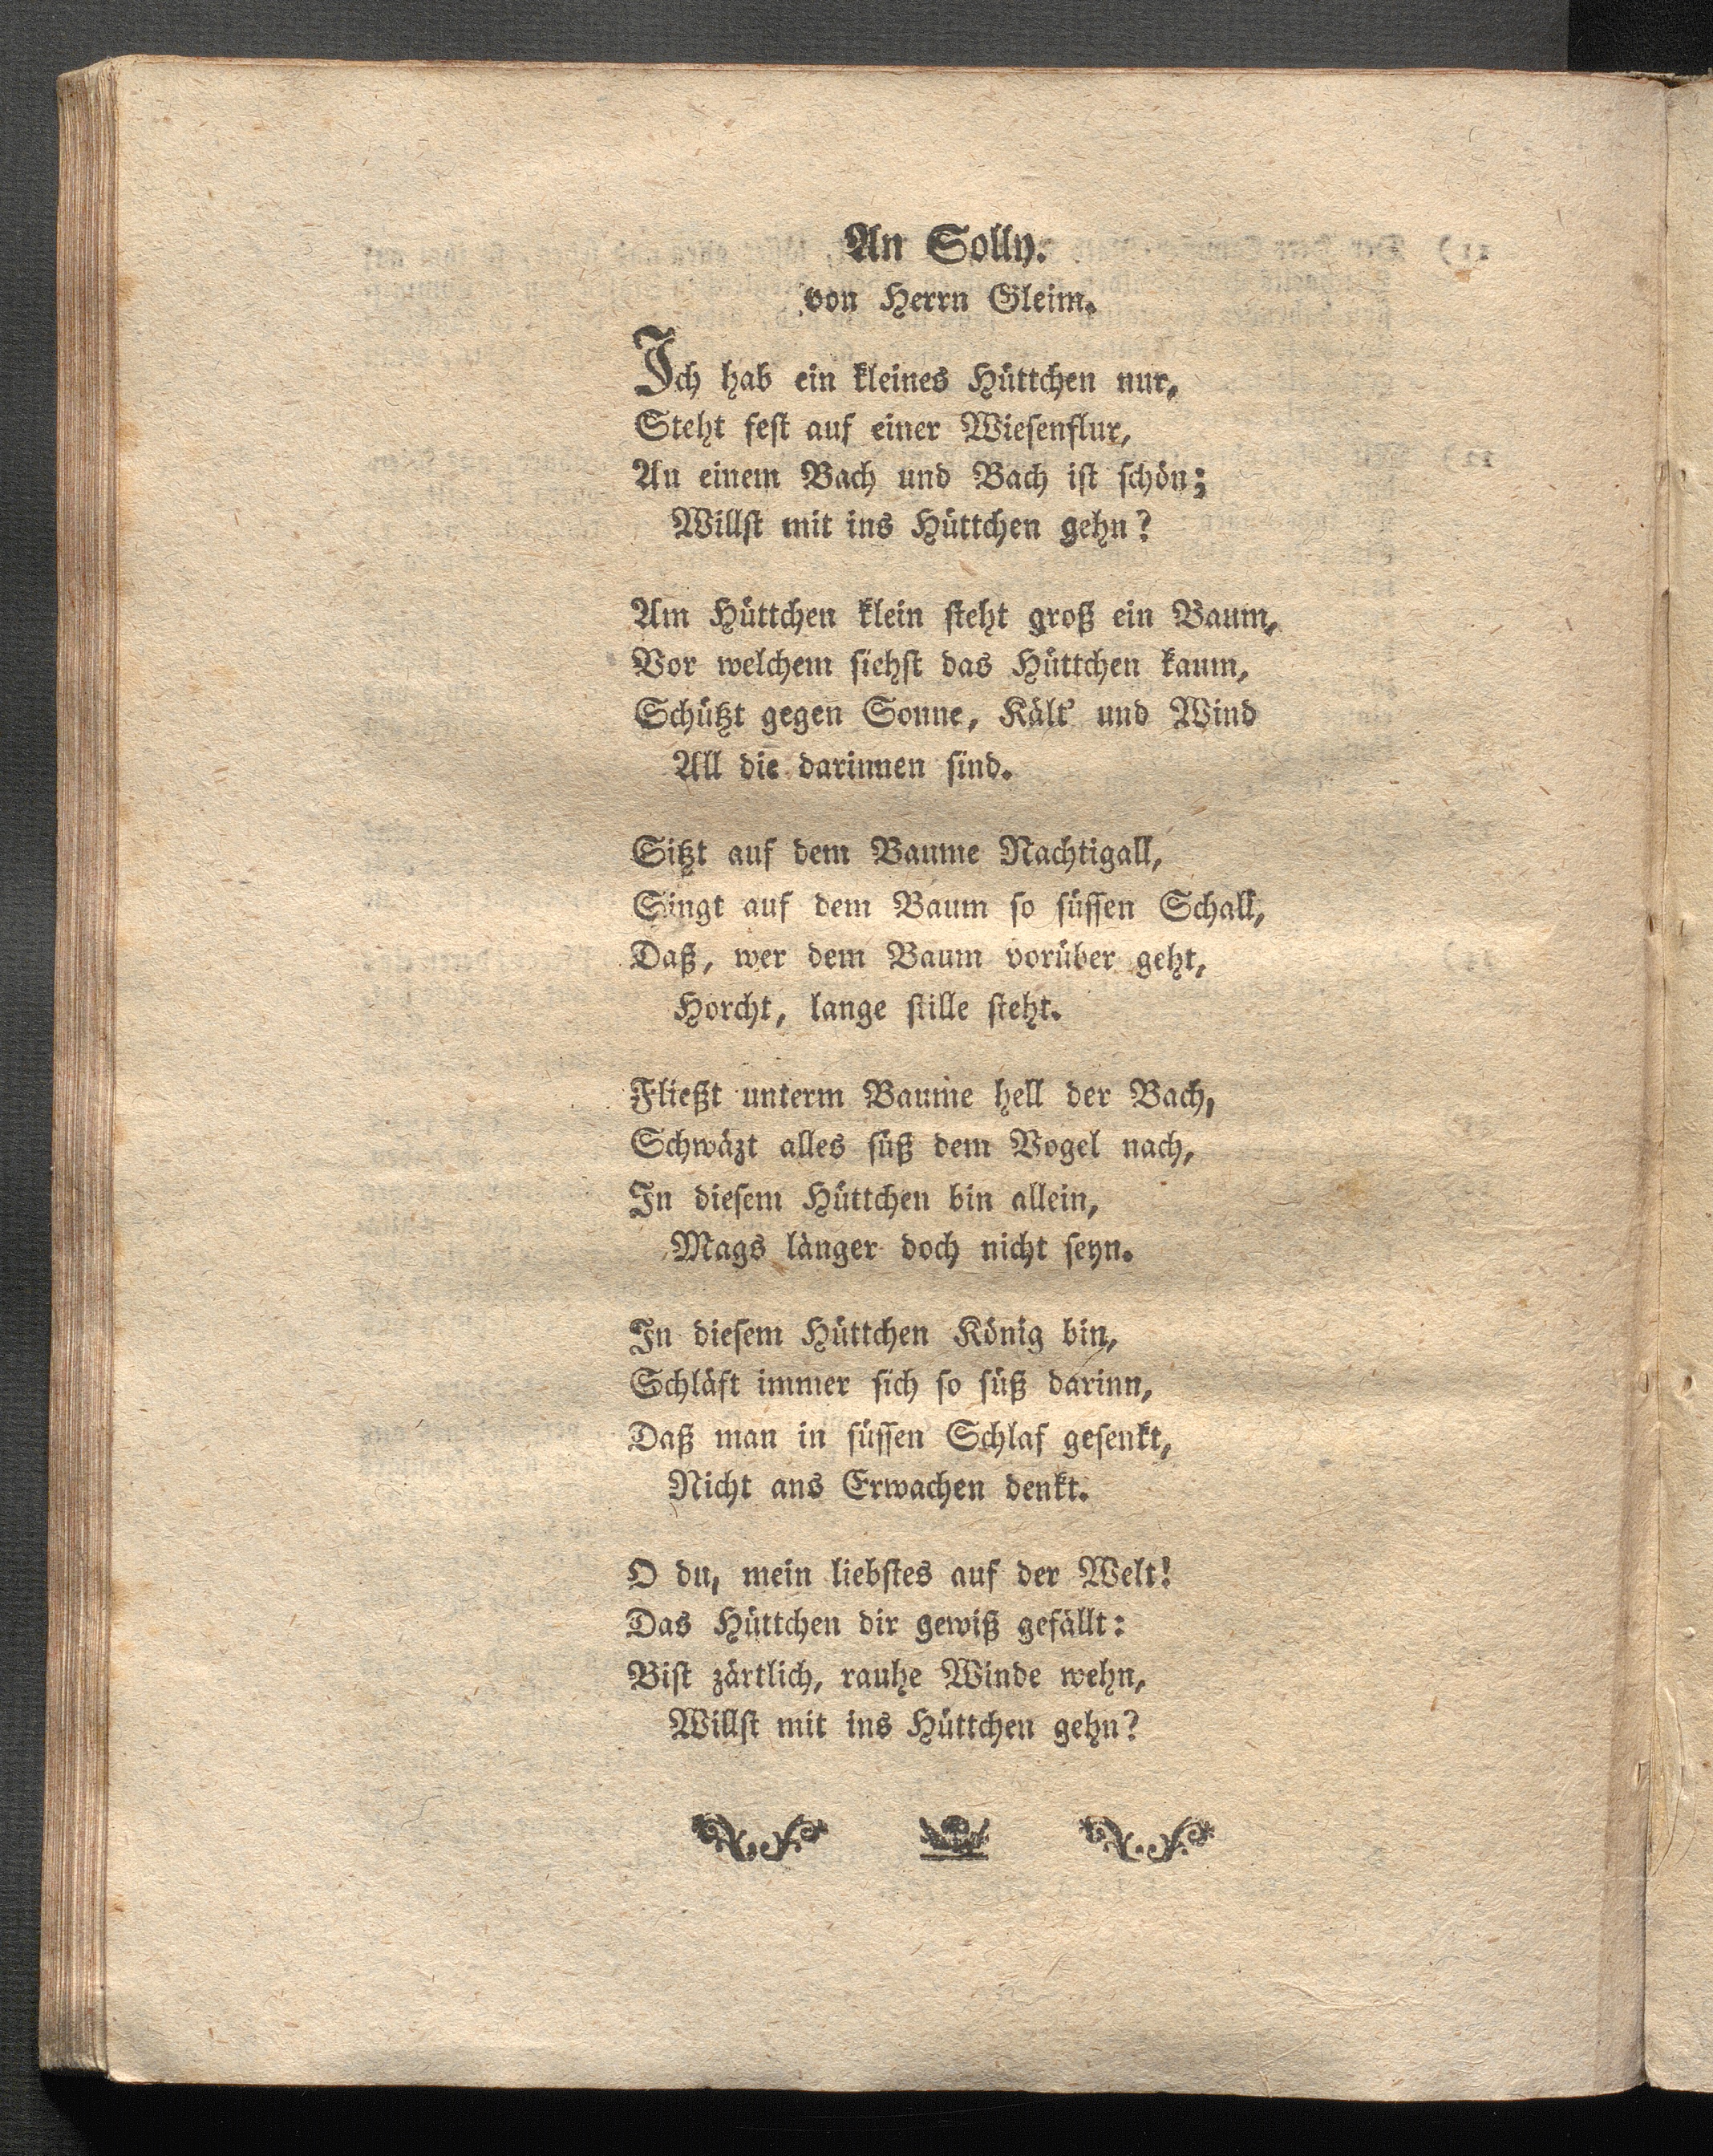 An Solly.
von Herrn Gleim.
Ich hab ein kleines Hüttchen nur,
Steht fest auf einer Wiesenflur,
An einem Bach und Bach ist schön;
Willst mit ins Hüttchen gehn?
Am Hüttchen klein steht groß ein Baum,
Vor welchem siehst das Hüttchen kaum,
Schützt gegen Sonne, Kält' und Wind
All die darinnen sind.
Sitzt auf dem Baume Nachtigall,
Singt auf dem Baum so süssen Schall,
Daß, wer dem Baum vorüber geht,
Horcht, lange stille steht.
Fließt unterm Baume hell der Bach,
Schwäzt alles süß dem Vogel nach,
In diesem Hüttchen bin allein,
Mags länger doch nicht seyn.
In diesem Hüttchen König bin,
Schläft immer sich so süß darinn,
Daß man in süssen Schlaf gesenkt,
Nicht ans Erwachen denkt.
O du, mein liebstes auf der Welt!
Das Hüttchen dir gewiß gefällt:
Bist zärtlich, rauhe Winde wehn,
Willst mit ins Hüttchen gehn?